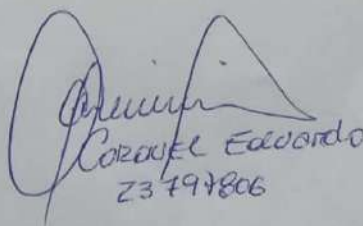 Coronel Eduardo
23797806